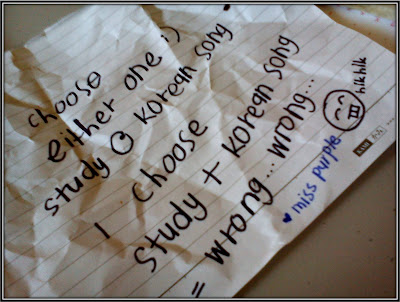 choose
either one :)
study @ Korean song
I choose
study + Korean song
= wrong... wrong...
hik hik
♥ miss purple